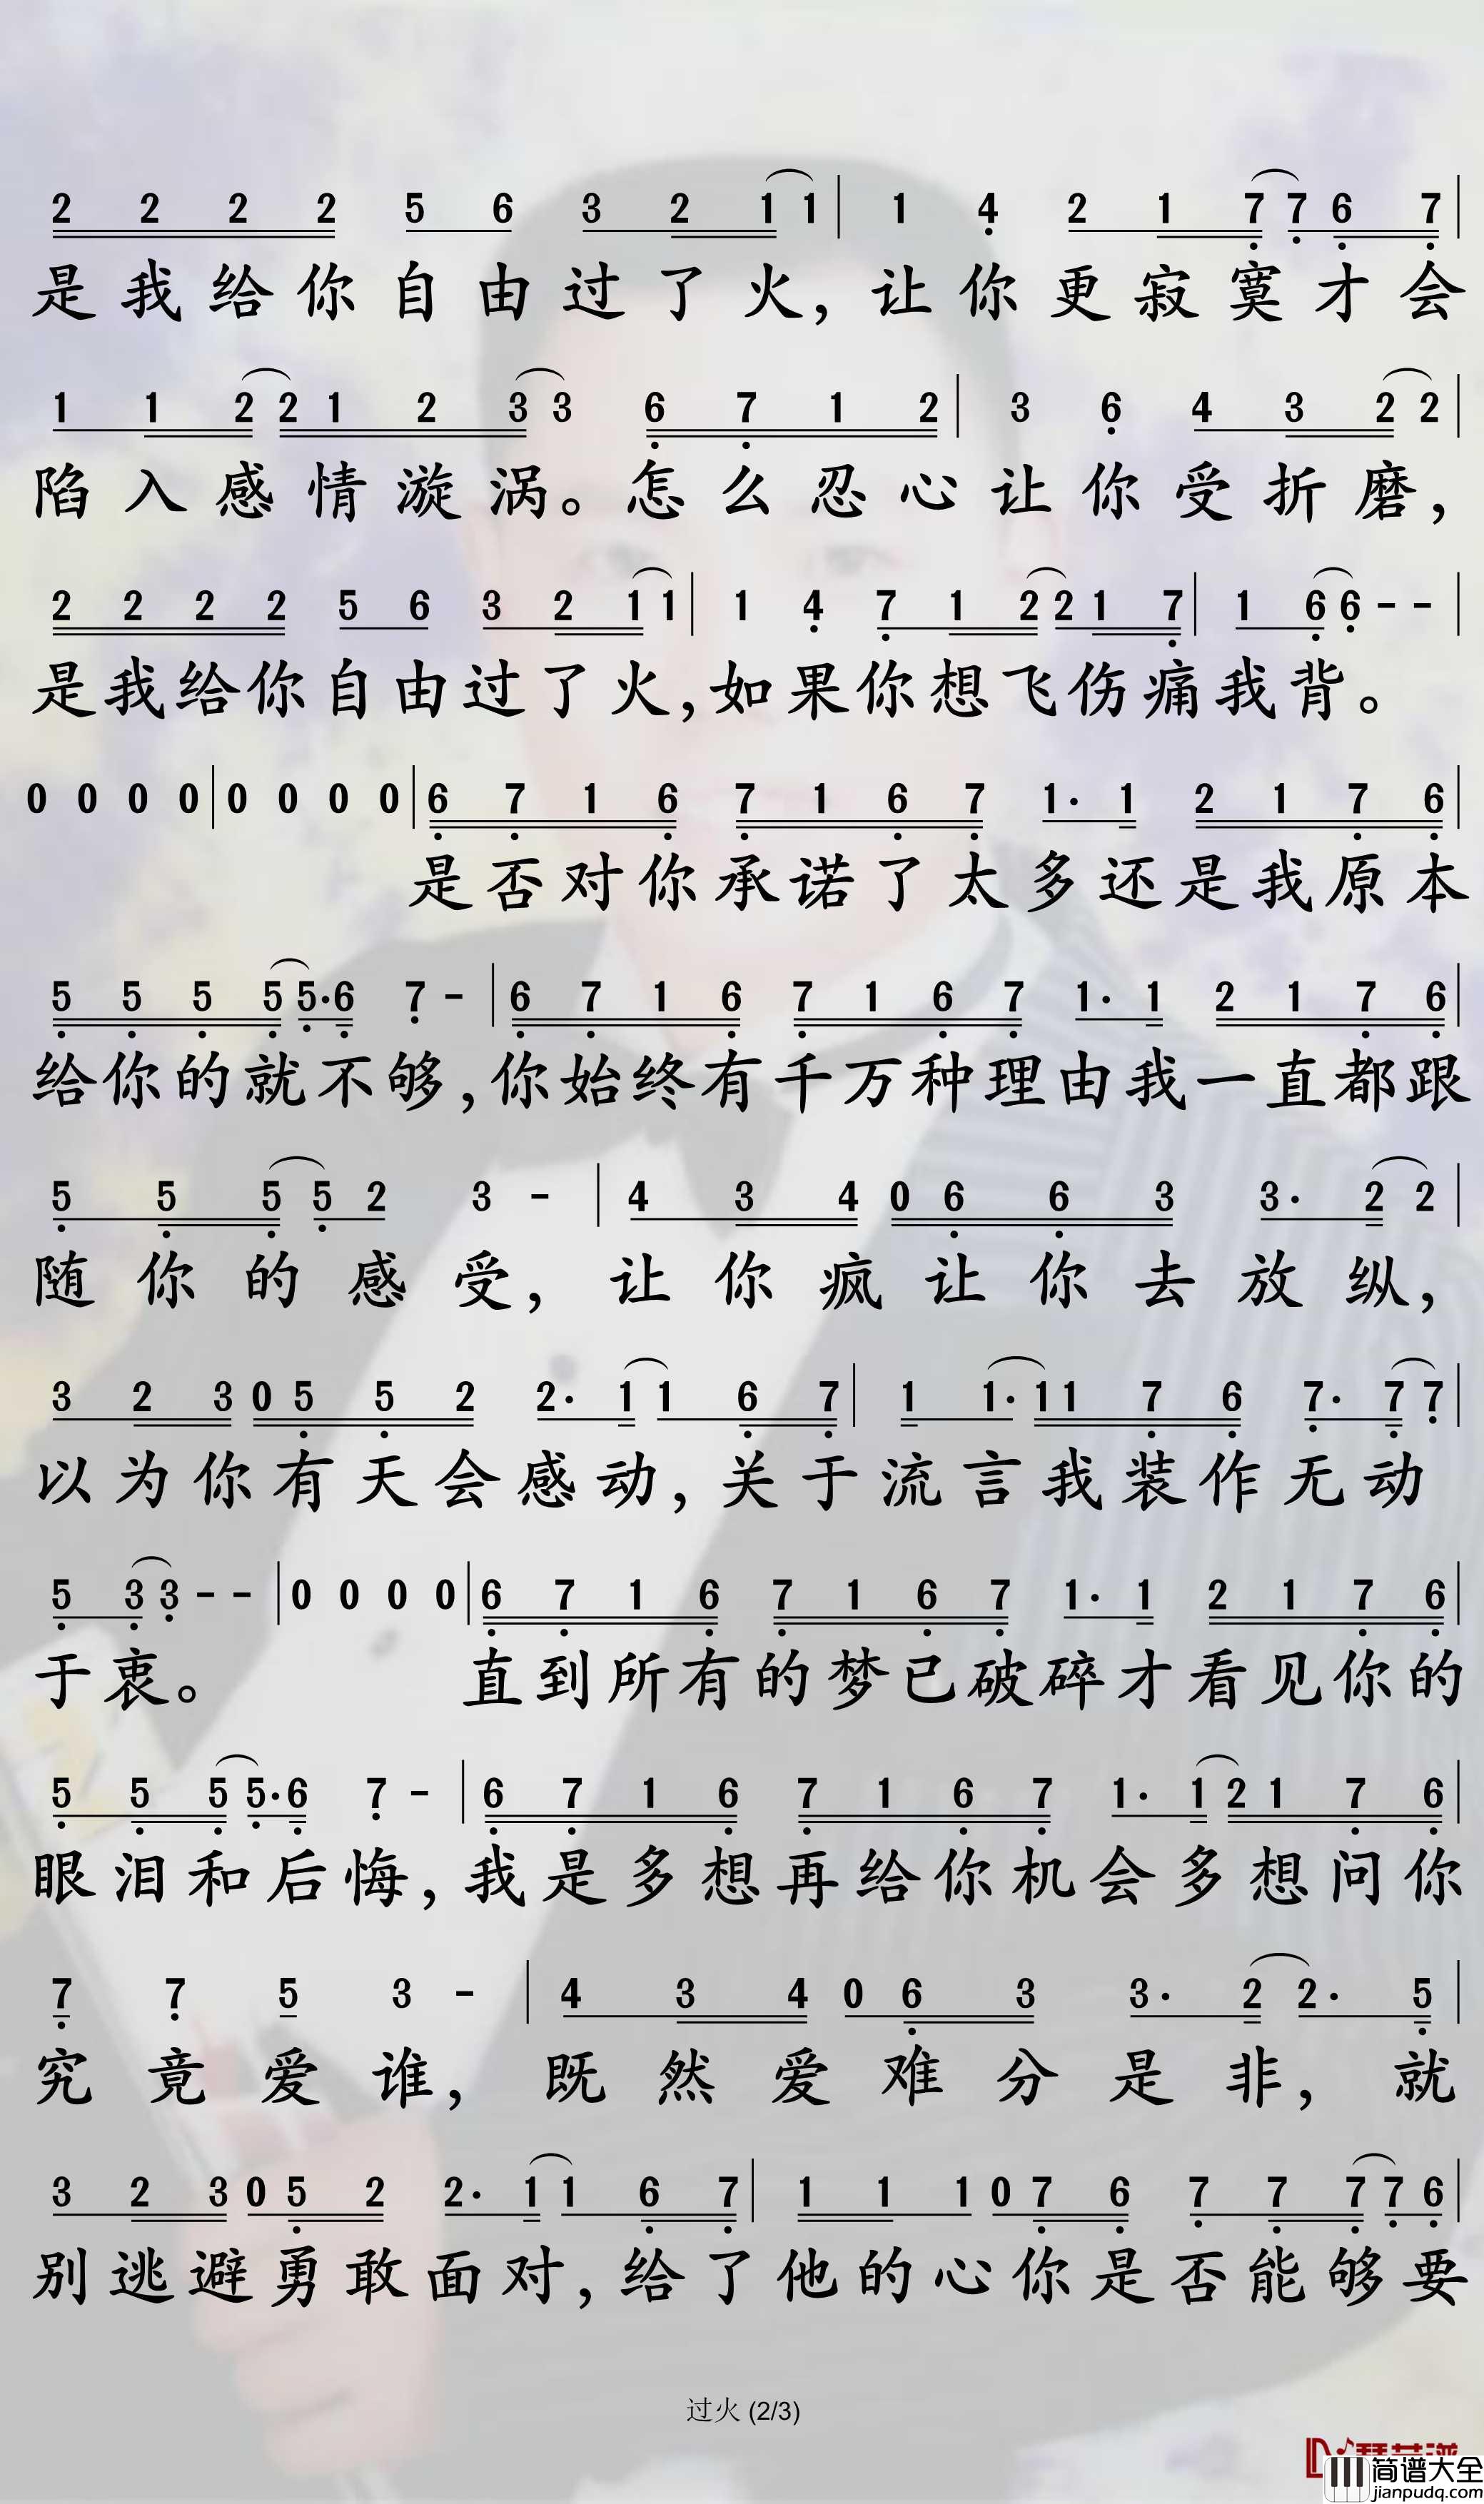 2 2 2 2 5 6 3 2 1 1 | 1 4 2 1 7 7 6 7 |
是我给你自由过了火，让你更寂寞才会
1 1 2 2 1 2 3 3 6 7 1 2 | 3 6 4 3 2 2 |
陷入感情漩涡。怎么忍心让你受折磨，
2 2 2 2 5 6 3 2 1 1 | 1 4 7 1 2 2 1 7 | 1 6 6 - - |
是我给你自由过了火，如果你想飞伤痛我背。
0 0 0 0 | 0 0 0 0 | 6 7 1 6 7 1 6 7 1· 1 2 1 7 6 |
是否对你承诺了太多还是我原本
5 5 5 5 5·6 7 - | 6 7 1 6 7 1 6 7 1· 1 2 1 7 6 |
给你的就不够，你始终有千万种理由我一直都跟
5 5 5 5 2 3 - | 4 3 4 0 6 6 3 3· 2 2 |
随你的感受，让你疯让你去放纵，
3 2 3 0 5 5 2 2· 1 1 6 7 | 1 1· 1 1 7 6 7· 7 7 |
以为你有天会感动，关于流言我装作无动
5 3 3 - - | 0 0 0 0 | 6 7 1 6 7 1 6 7 1· 1 2 1 7 6 |
于衷。直到所有的梦已破碎才看见你的
5 5 5 5·6 7 - | 6 7 1 6 7 1 6 7 1· 1 2 1 7 6 |
眼泪和后悔，我是多想再给你机会多想问你
7 7 5 3 - | 4 3 4 0 6 3 3· 2 2· 5 |
究竟爱谁，既然爱难分是非，就
3 2 3 0 5 2 2· 1 1 6 7 | 1 1 1 0 7 6 7 7 7 7 6 |
别逃避勇敢面对，给了他的心你是否能够要
过火 (2/3)
简谱大全
jianpudq.com